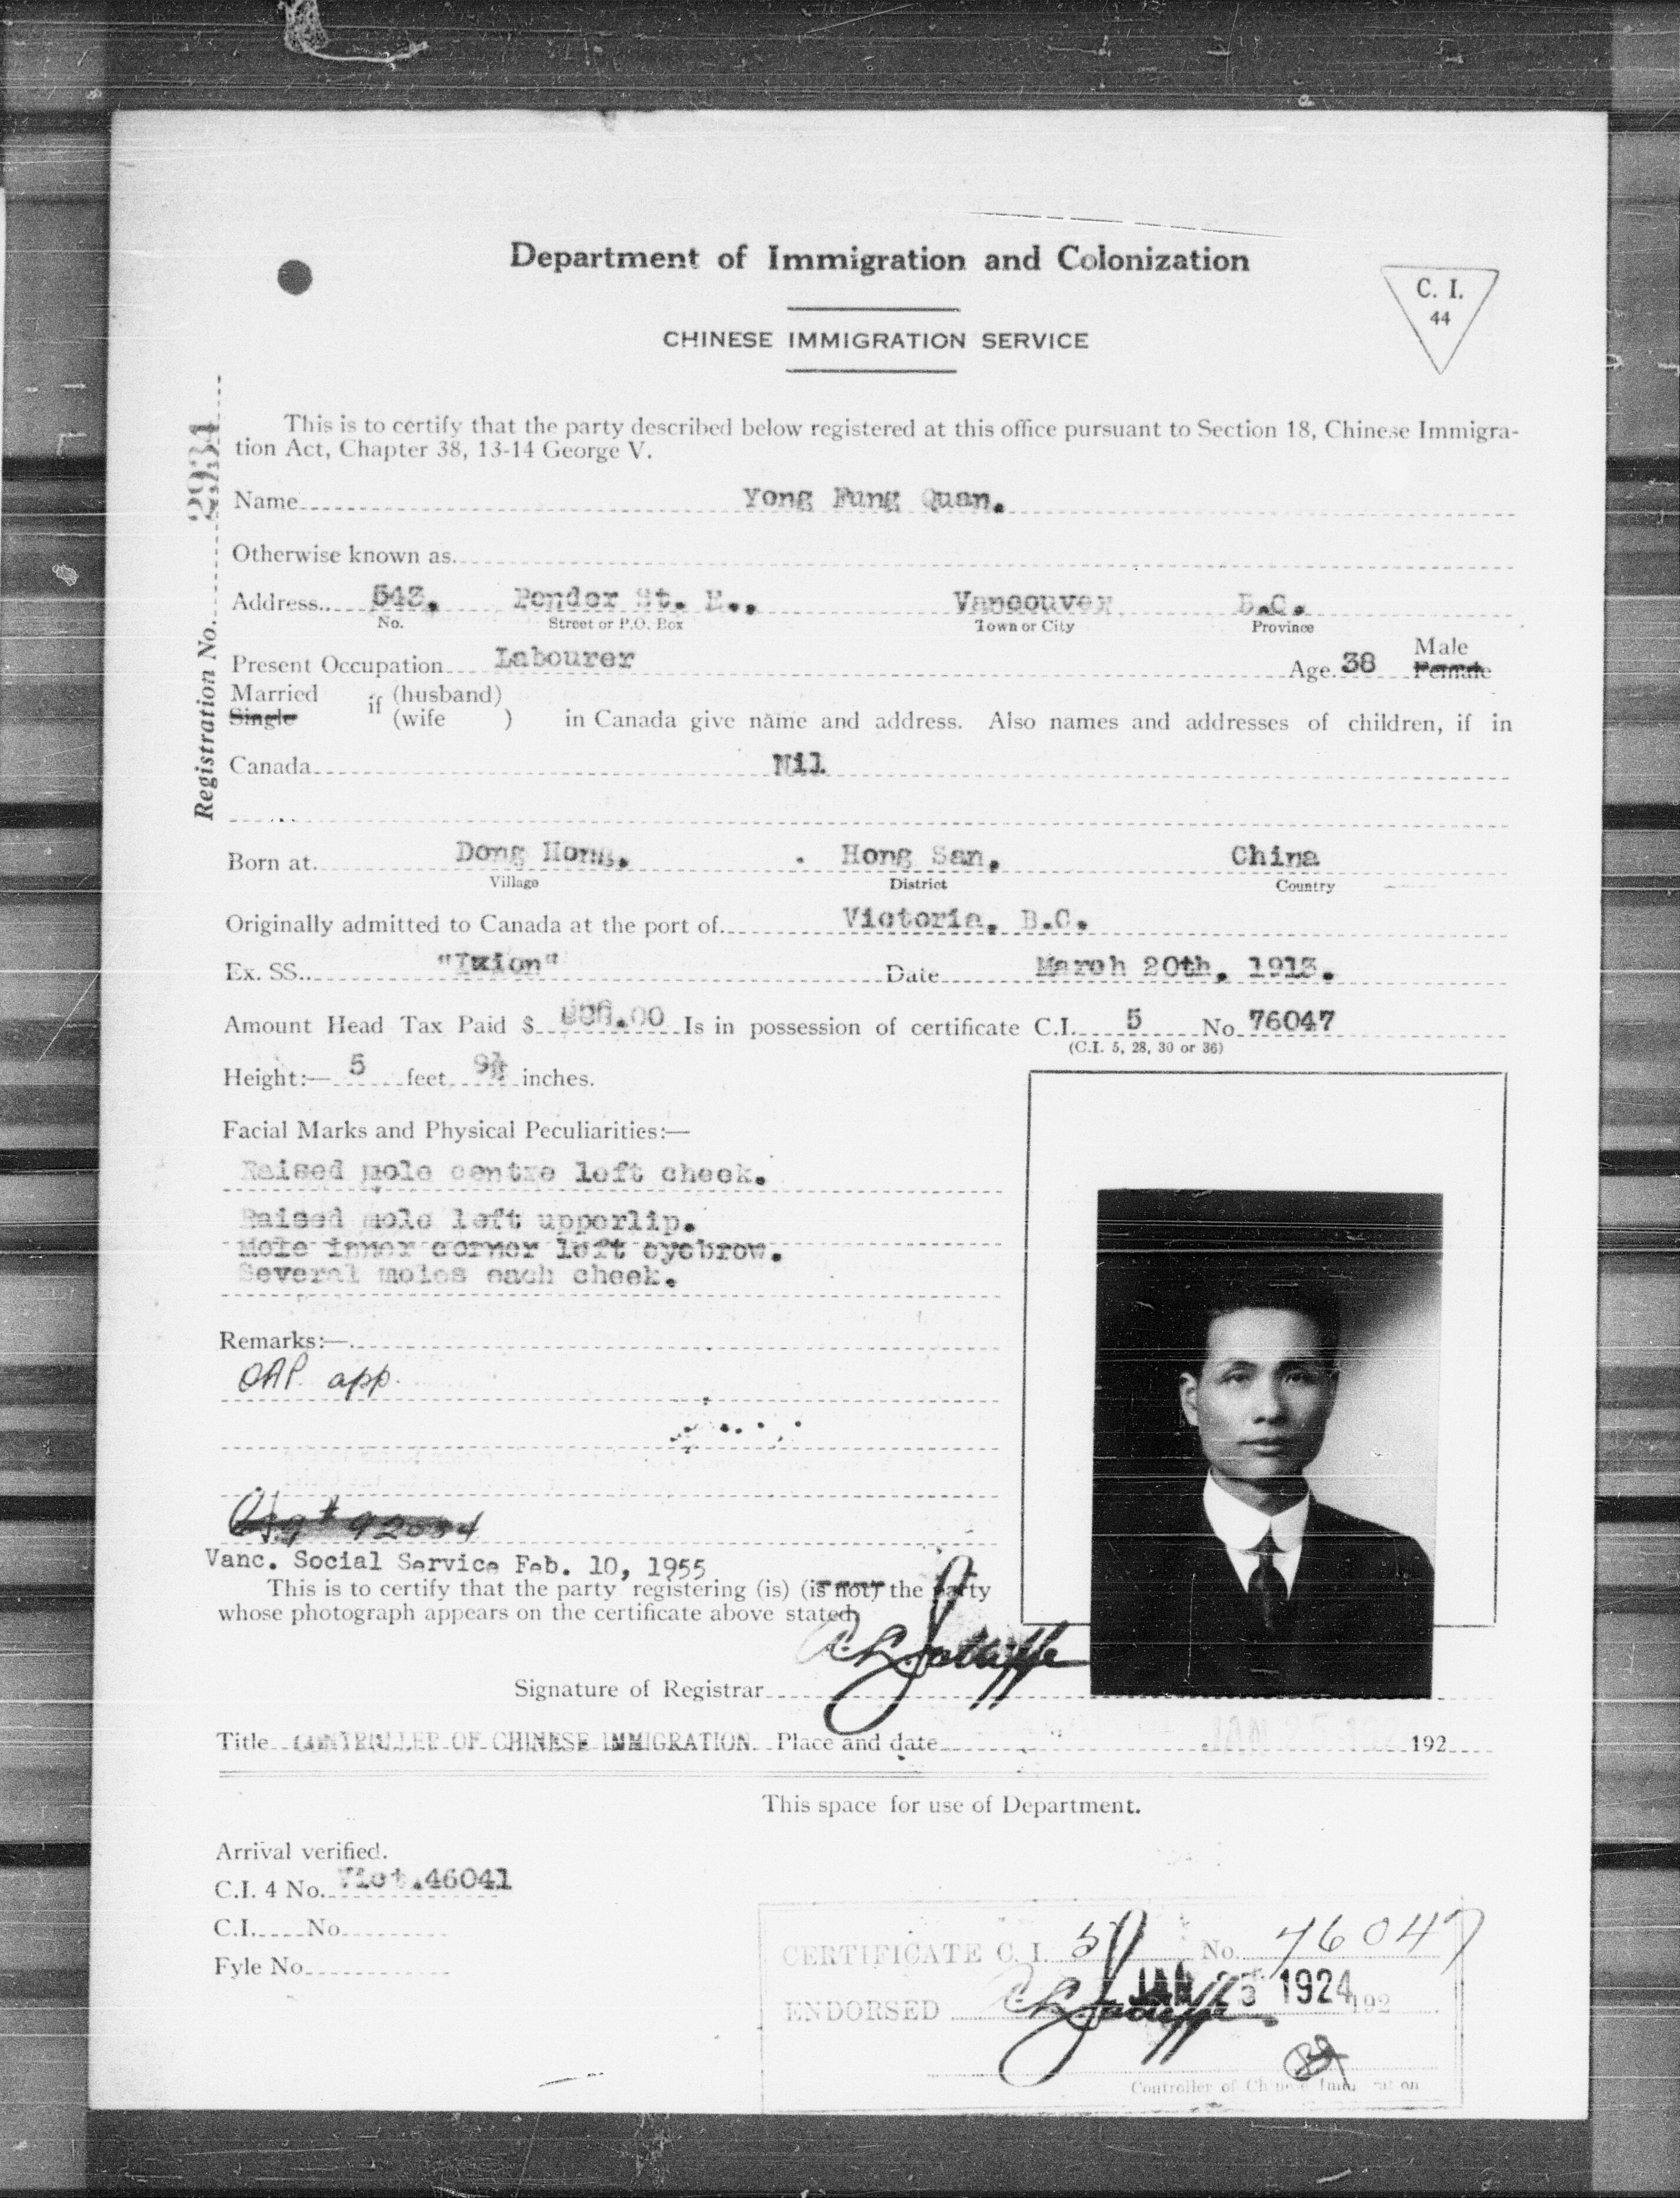 Department of Immigration and Colonization
C. I.
44
CHINESE IMMIGRATION SERVICE
This is to certify that the party described below registered at this office pursuant to Section 18, Chinese Immigra-
tion Act, Chapter 38, 13-14 George V.
Registration No. 2934
Name Yong Fung Quan.
Otherwise known as
Address 543. Pender St. E., Vancouver B.C.
No. Street or P.O. Box Town or City Province
Present Occupation Labourer Age 38 Male Female
Married if (husband)
Single (wife ) in Canada give name and address. Also names and addresses of children, if in
Canada Nil
Born at Dong Hong. Hong San. China
Village District Country
Originally admitted to Canada at the port of Victoria, B.C.
Ex. SS. "Ixion" Date March 20th, 1913.
Amount Head Tax Paid $ Is in possession of certificate C.I. 5 No 76047
(C.I. 5, 28, 30 or 36)
Height:— 5 feet inches.
Facial Marks and Physical Peculiarities:—
Raised mole centre left cheek.
Raised mole left upperlip.
Mole inner corner left eyebrow.
Several moles each cheek.
Remarks:—
OAP. app.
# 92034
Vanc. Social Service Feb. 10, 1955
This is to certify that the party registering (is) (is not) the party
whose photograph appears on the certificate above stated
Signature of Registrar
Title CONTROLLER OF CHINESE IMMIGRATION Place and date JAN 25 192
This space for use of Department.
Arrival verified.
C.I. 4 No. Vict.46041
C.I. No
Fyle No
CERTIFICATE C. I. 5 No. 76047
ENDORSED JAN 25 1924 192
Controller of Chinese Immigration